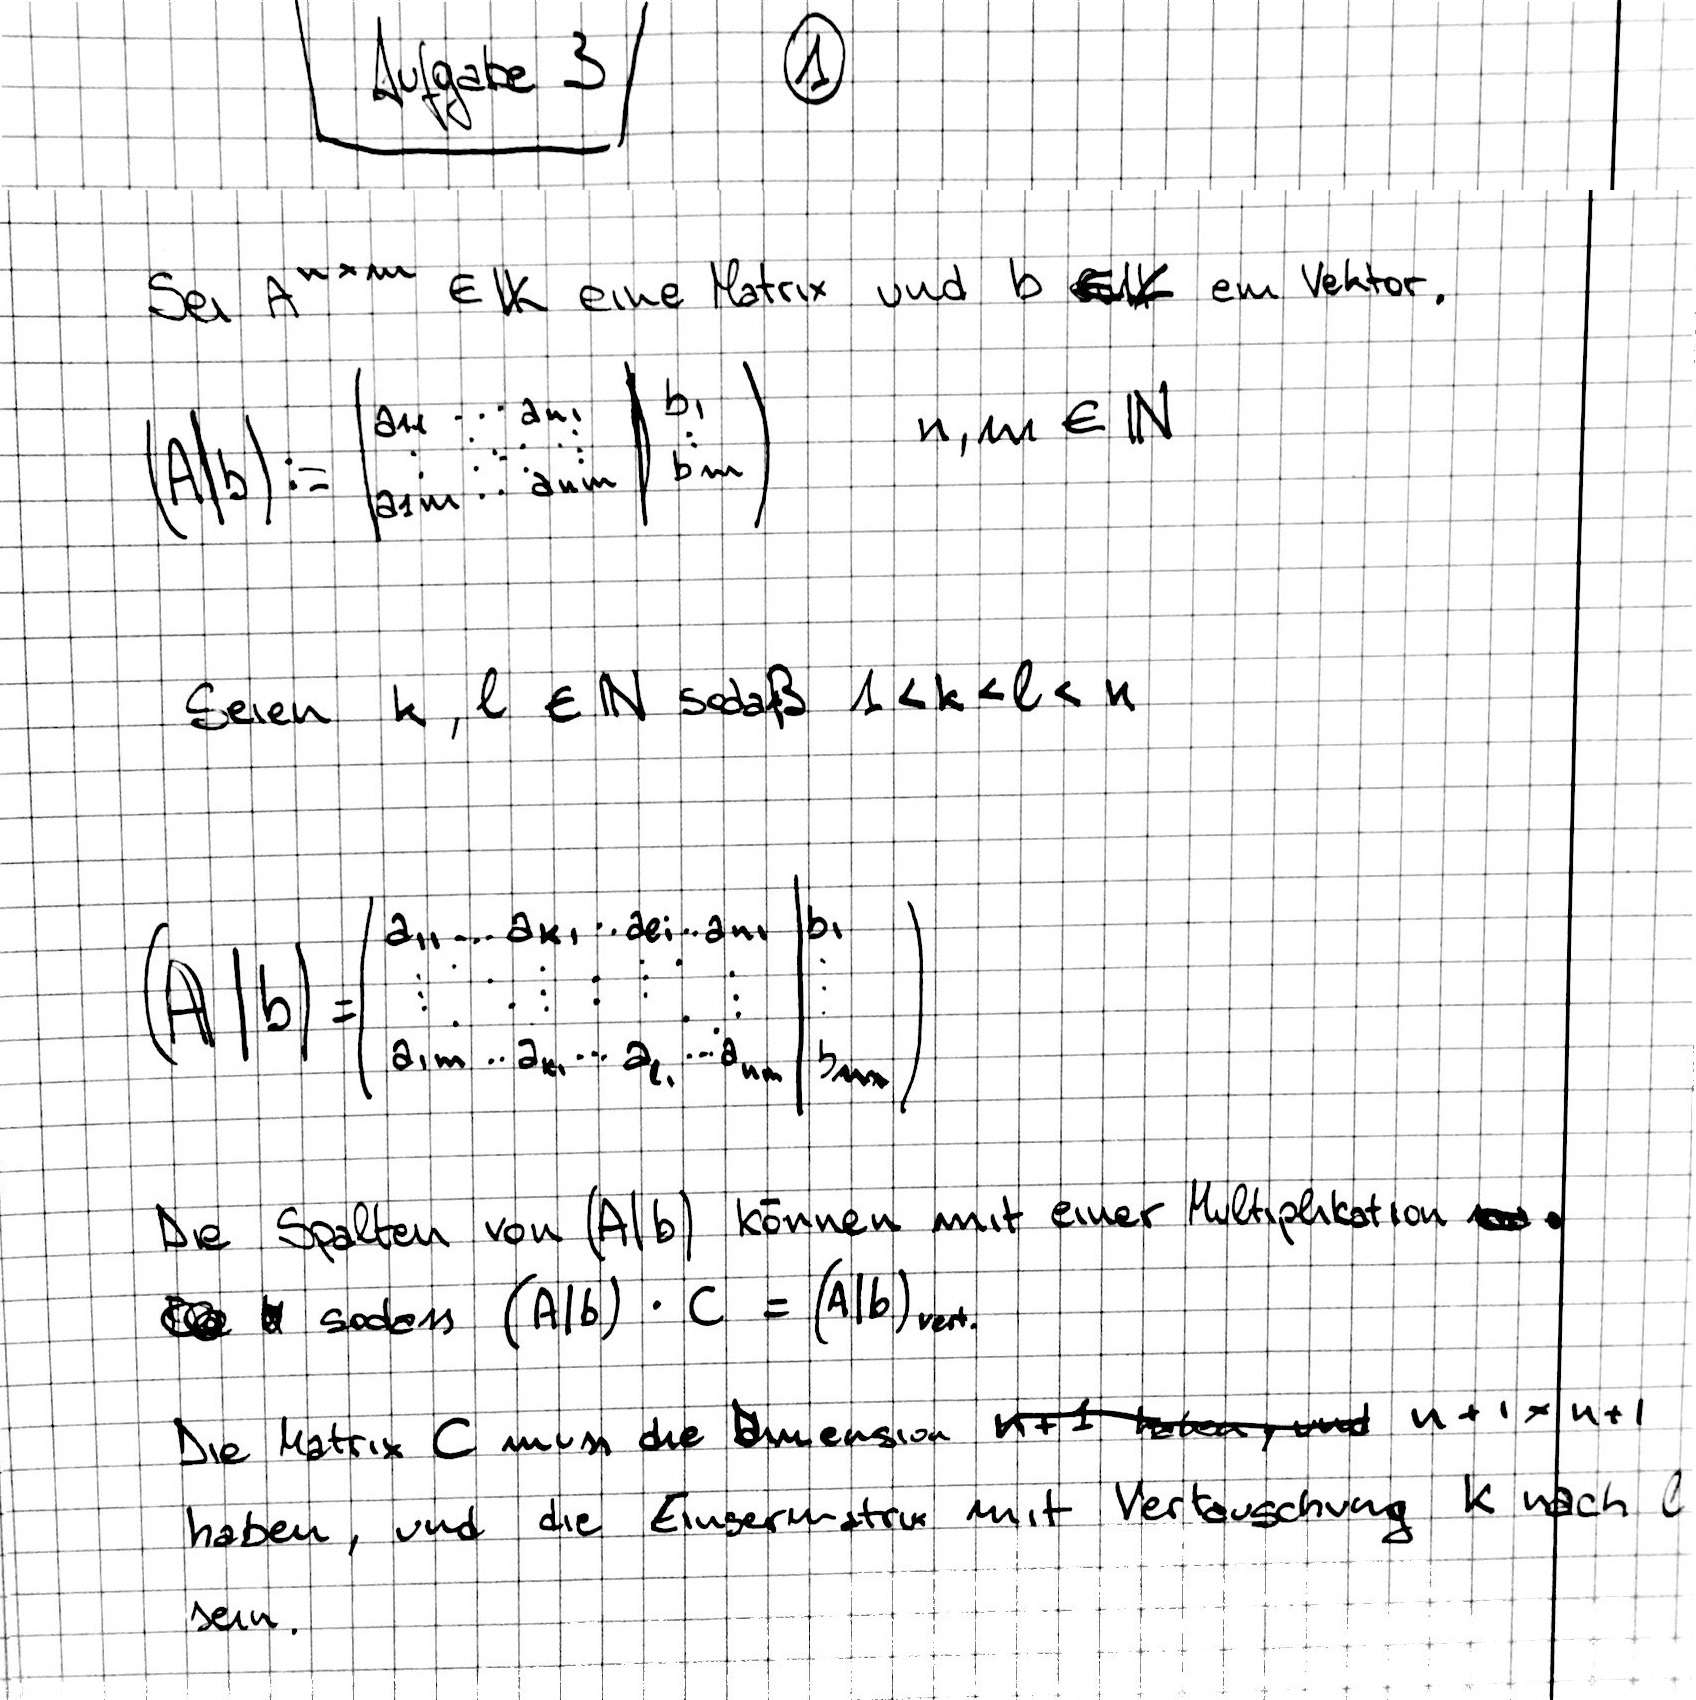 Aufgabe 3 ①
Sei A^{n×m} ∈ 𝕂 eine Matrix und b ein Vektor.
(A|b) := ( a₁₁ ⋯ aₙ₁ | b₁ ) n, m ∈ ℕ
( ⋮ ⋱ ⋮ | ⋮ )
( a₁ₘ ⋯ aₙₘ | bₘ )
Seien k, l ∈ ℕ sodaß 1 < k < l < n
( a₁₁ ... aₖ₁ ⋯ aₗ₁ ⋯ aₙ₁ | b₁ )
(A|b) = ( ⋮ ⋮ ⋮ ⋮ | ⋮ )
( a₁ₘ ⋯ aₖ₁ ⋯ aₗ₁ ⋯ aₙₘ | bₘ )
Die Spalten von (A|b) können mit einer Multiplikation .
sodass (A|b) · C = (A|b)ᵥₑᵣₜ.
Die Matrix C muss die Dimension n+1 × n+1
haben, und die Einsermatrix mit Vertauschung k nach l
sein.